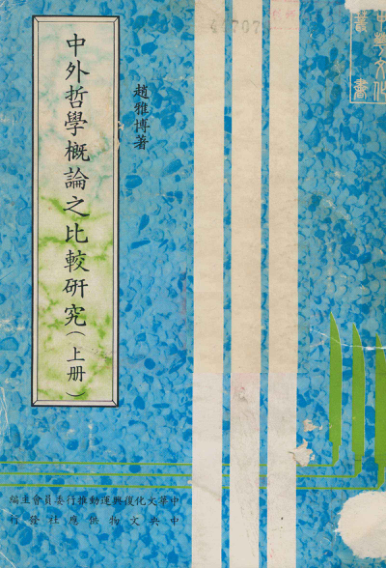 中外哲學概論之比較研究（上册）
趙雅博著
中華文化復興運動推行委員會主編
中央文物供應社發行